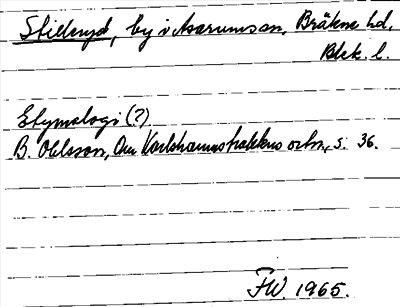 Stilleryd, by i Asarums sn, Bräkne hd,
Blek. l.
Etymologi (?)
B. Ohlsson, Om Karlshamnstraktens ortn., s. 36.
FW. 1965.